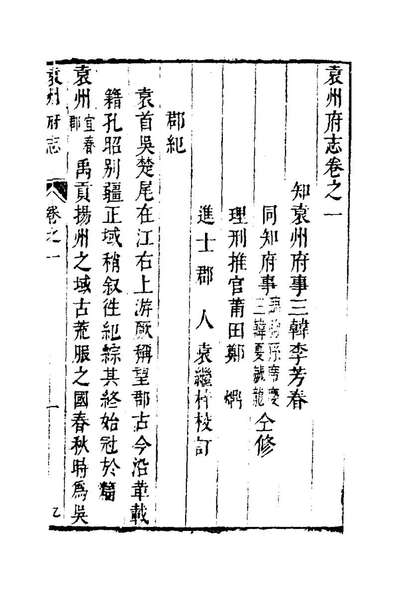 袁州府志卷之一
知袁州府事三韓李芳春
同知府事 三韓夏誠龍 仝修
理刑推官莆田鄭
進士郡人袁繼梓校訂
郡紀
袁首吳楚尾在江右上游厥稱望郡古今沿革載
籍孔昭别疆正域稍叙徃紀綜其終始冠於篇
袁州 宜春郡 禹貢揚州之域古荒服之國春秋時為吳
袁州府志 卷之一 一 乙